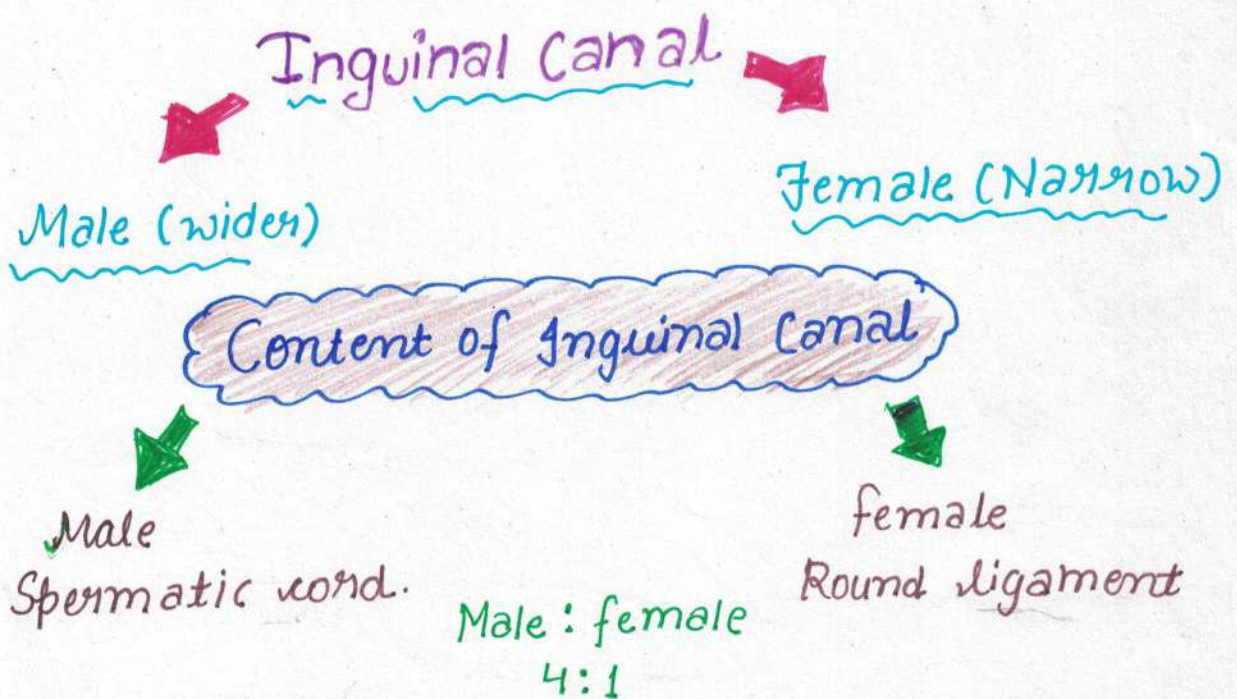 Inguinal Canal
Male (wider)
Female (Narrow)
Content of Inguinal Canal
Male
Spermatic cord.
female
Round ligament
Male : female
4:1